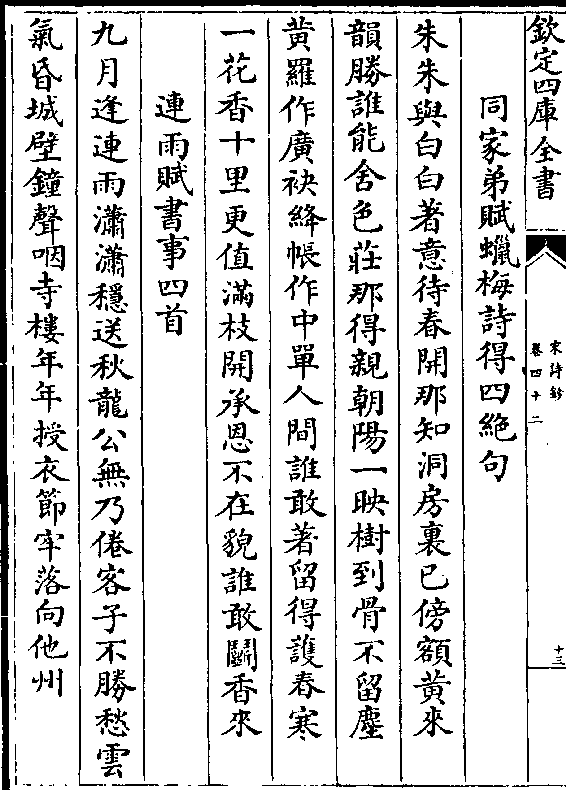 欽定四庫全書
宋詩鈔
卷四十二
十三
同家弟賦蠟梅詩得四絶句
朱朱與白白著意待春開那知洞房裏已傍額黃來
韻勝誰能舍色莊那得親朝陽一映樹到骨不留塵
黃羅作廣袂絳帳作中單人間誰敢著留得護春寒
一花香十里更值滿枝開承恩不在貌誰敢鬭香來
連雨賦書事四首
九月逢連雨瀟瀟穩送秋龍公無乃倦客子不勝愁雲
氣昏城壁鐘聲咽寺樓年年授衣節牢落向他州